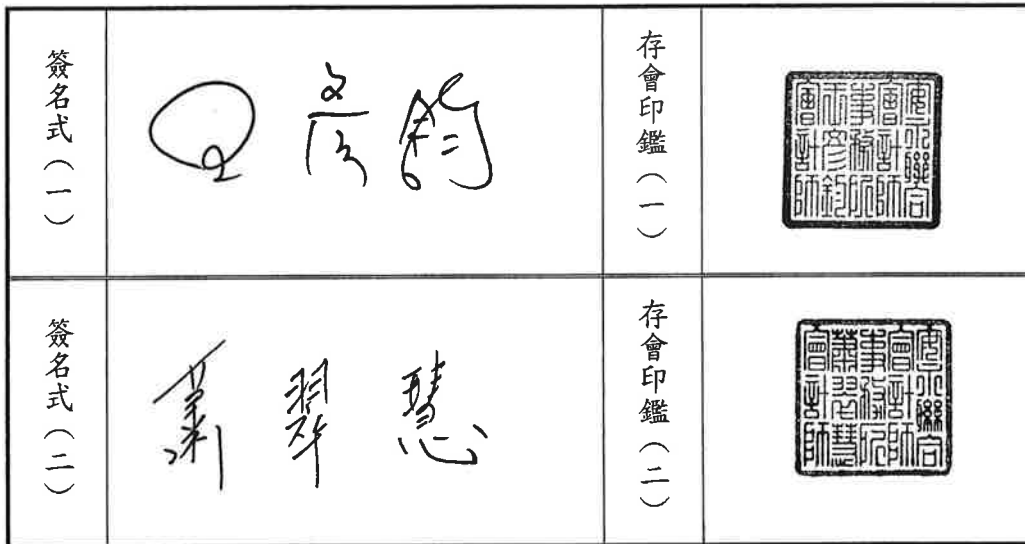 簽名式（一）
王彥鈞
存會印鑑（一）
安永聯合
會計師
事務所
王彥鈞
會計師
簽名式（二）
蕭翠慧
存會印鑑（二）
安永聯合
會計師
事務所
蕭翠慧
會計師